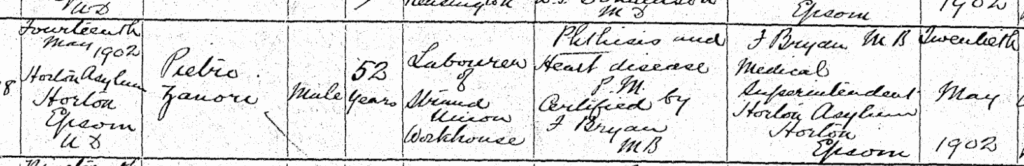 UD
Kensington
MD
Epsom
1902
Fourteenth
May 1902
Horton Asylum
Horton
Epsom
UD
8
Pietro
Zanori
Male
52
years
Labourer
of
Strand
Union
Workhouse
Phthisis and
Heart disease
P.M.
Certified by
F Bryan
MB
F Bryan MB
Medical
Superintendent
Horton Asylum
Horton
Epsom
Twentieth
May
1902